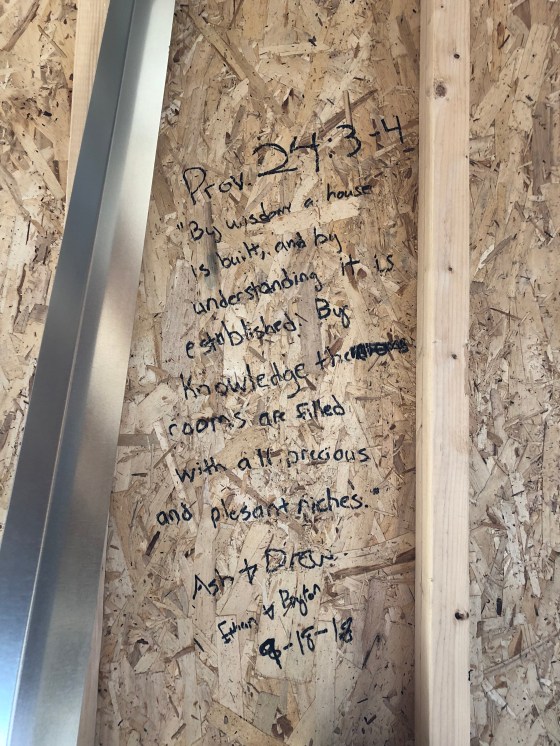 Prov. 24:3-4
"By wisdom a house
is built, and by
understanding it is
established. By
Knowledge the
rooms are filled
with all precious
and plesant riches."
Ash & Drew
&
-18-18